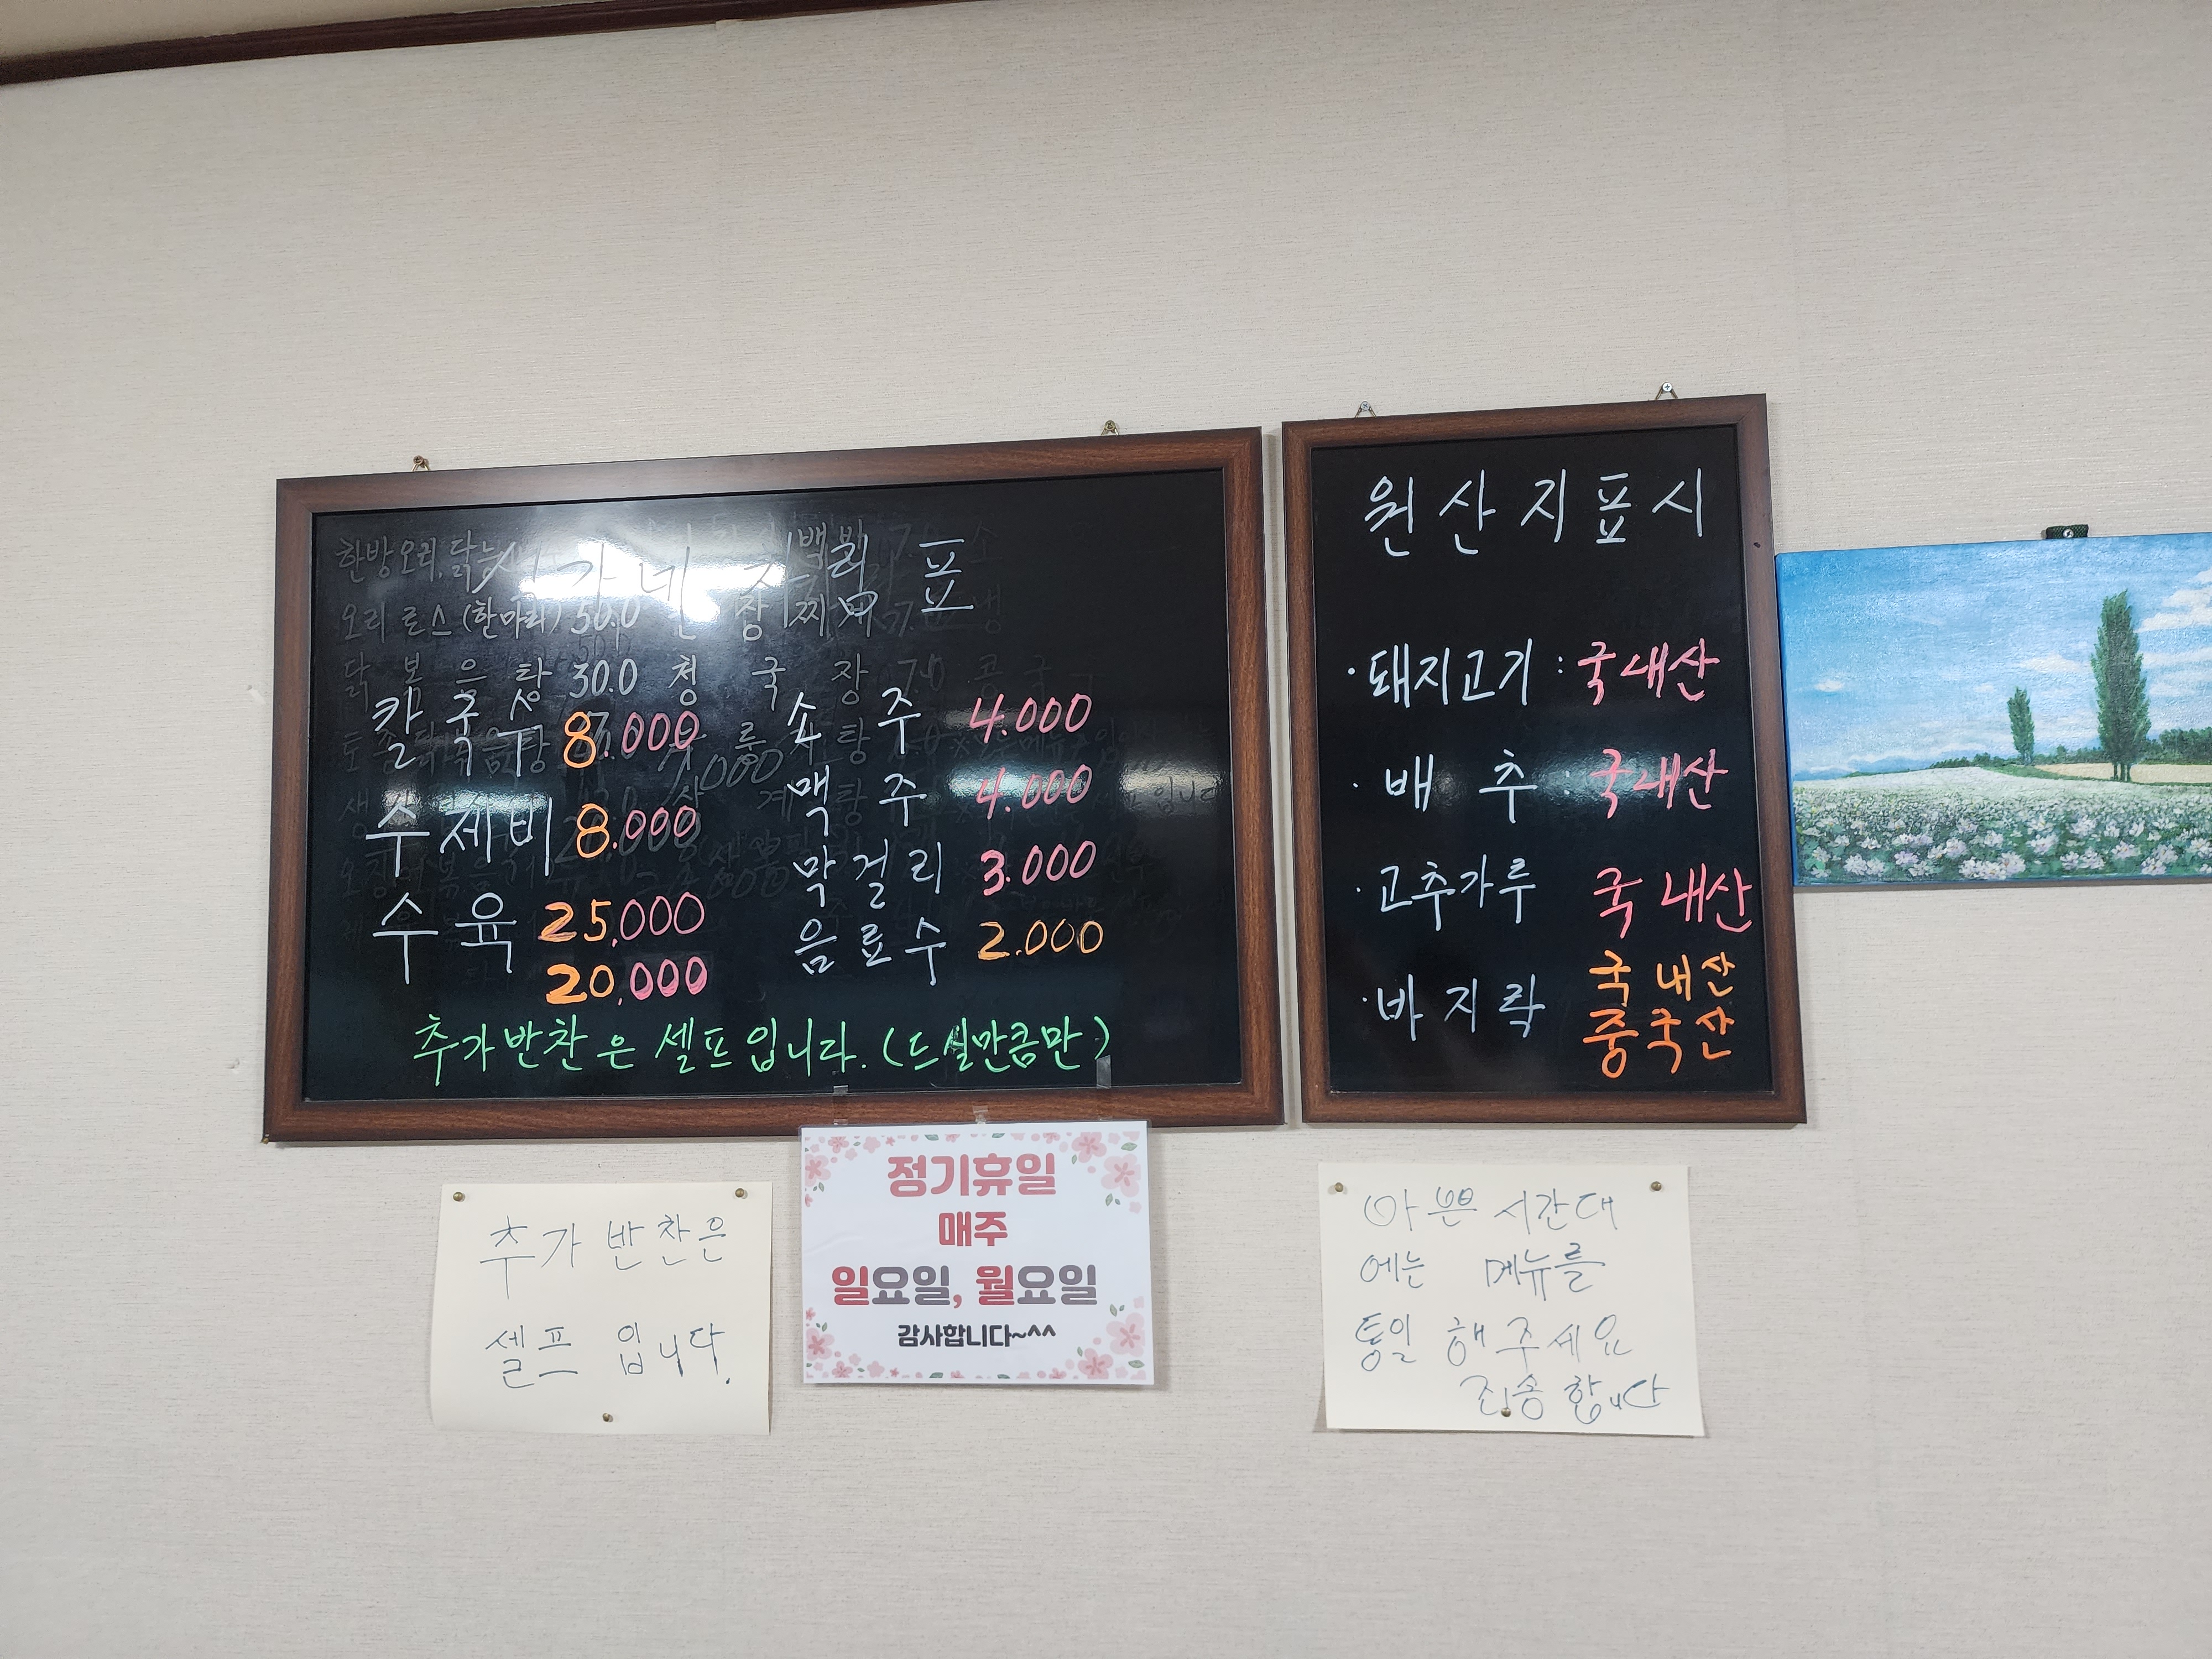 가네 차림표
칼국수 8.000
수제비 8.000
수육 25,000
20,000
소주 4.000
맥주 4.000
막걸리 3.000
음료수 2.000
추가반찬은 셀프입니다. (드실만큼만)
원산지표시
·돼지고기 : 국내산
·배추 : 국내산
·고추가루 국내산
·바지락 국내산
중국산
추가 반찬은
셀프 입니다.
정기휴일
매주
일요일, 월요일
감사합니다~^^
바쁜 시간대
에는 메뉴를
통일 해주세요
죄송합니다